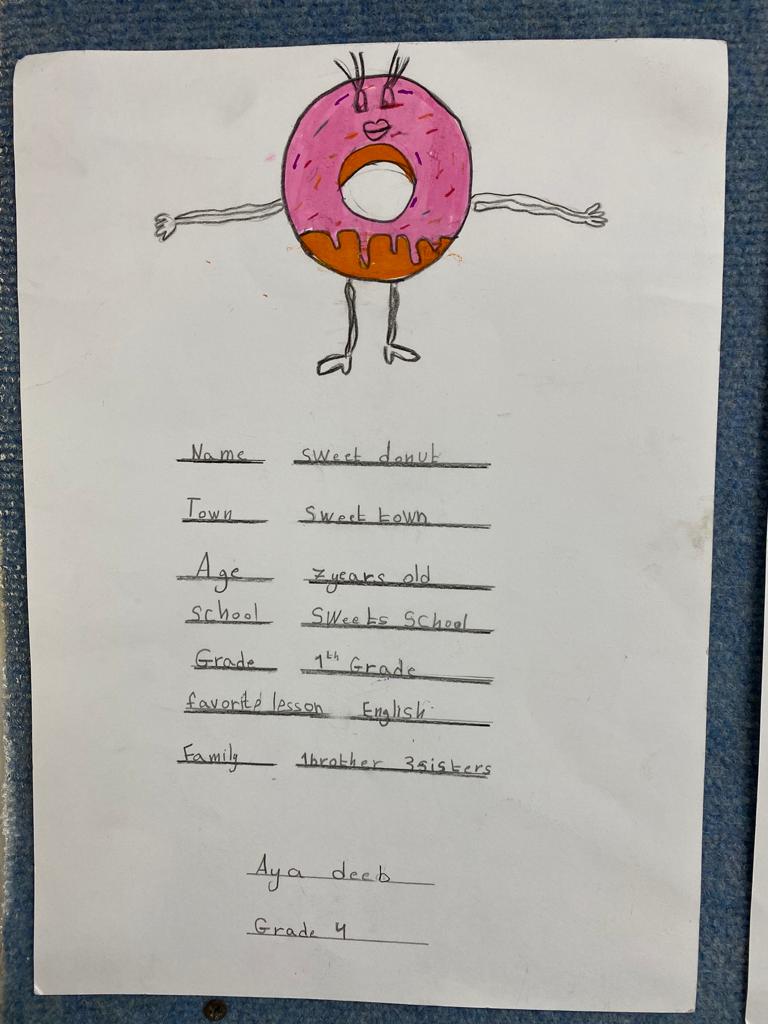 Name sweet donut
Town Sweet town
Age 7years old
School Sweets School
Grade 1th Grade
favorite lesson English
Family 1brother 3sisters
Aya deeb
Grade 4